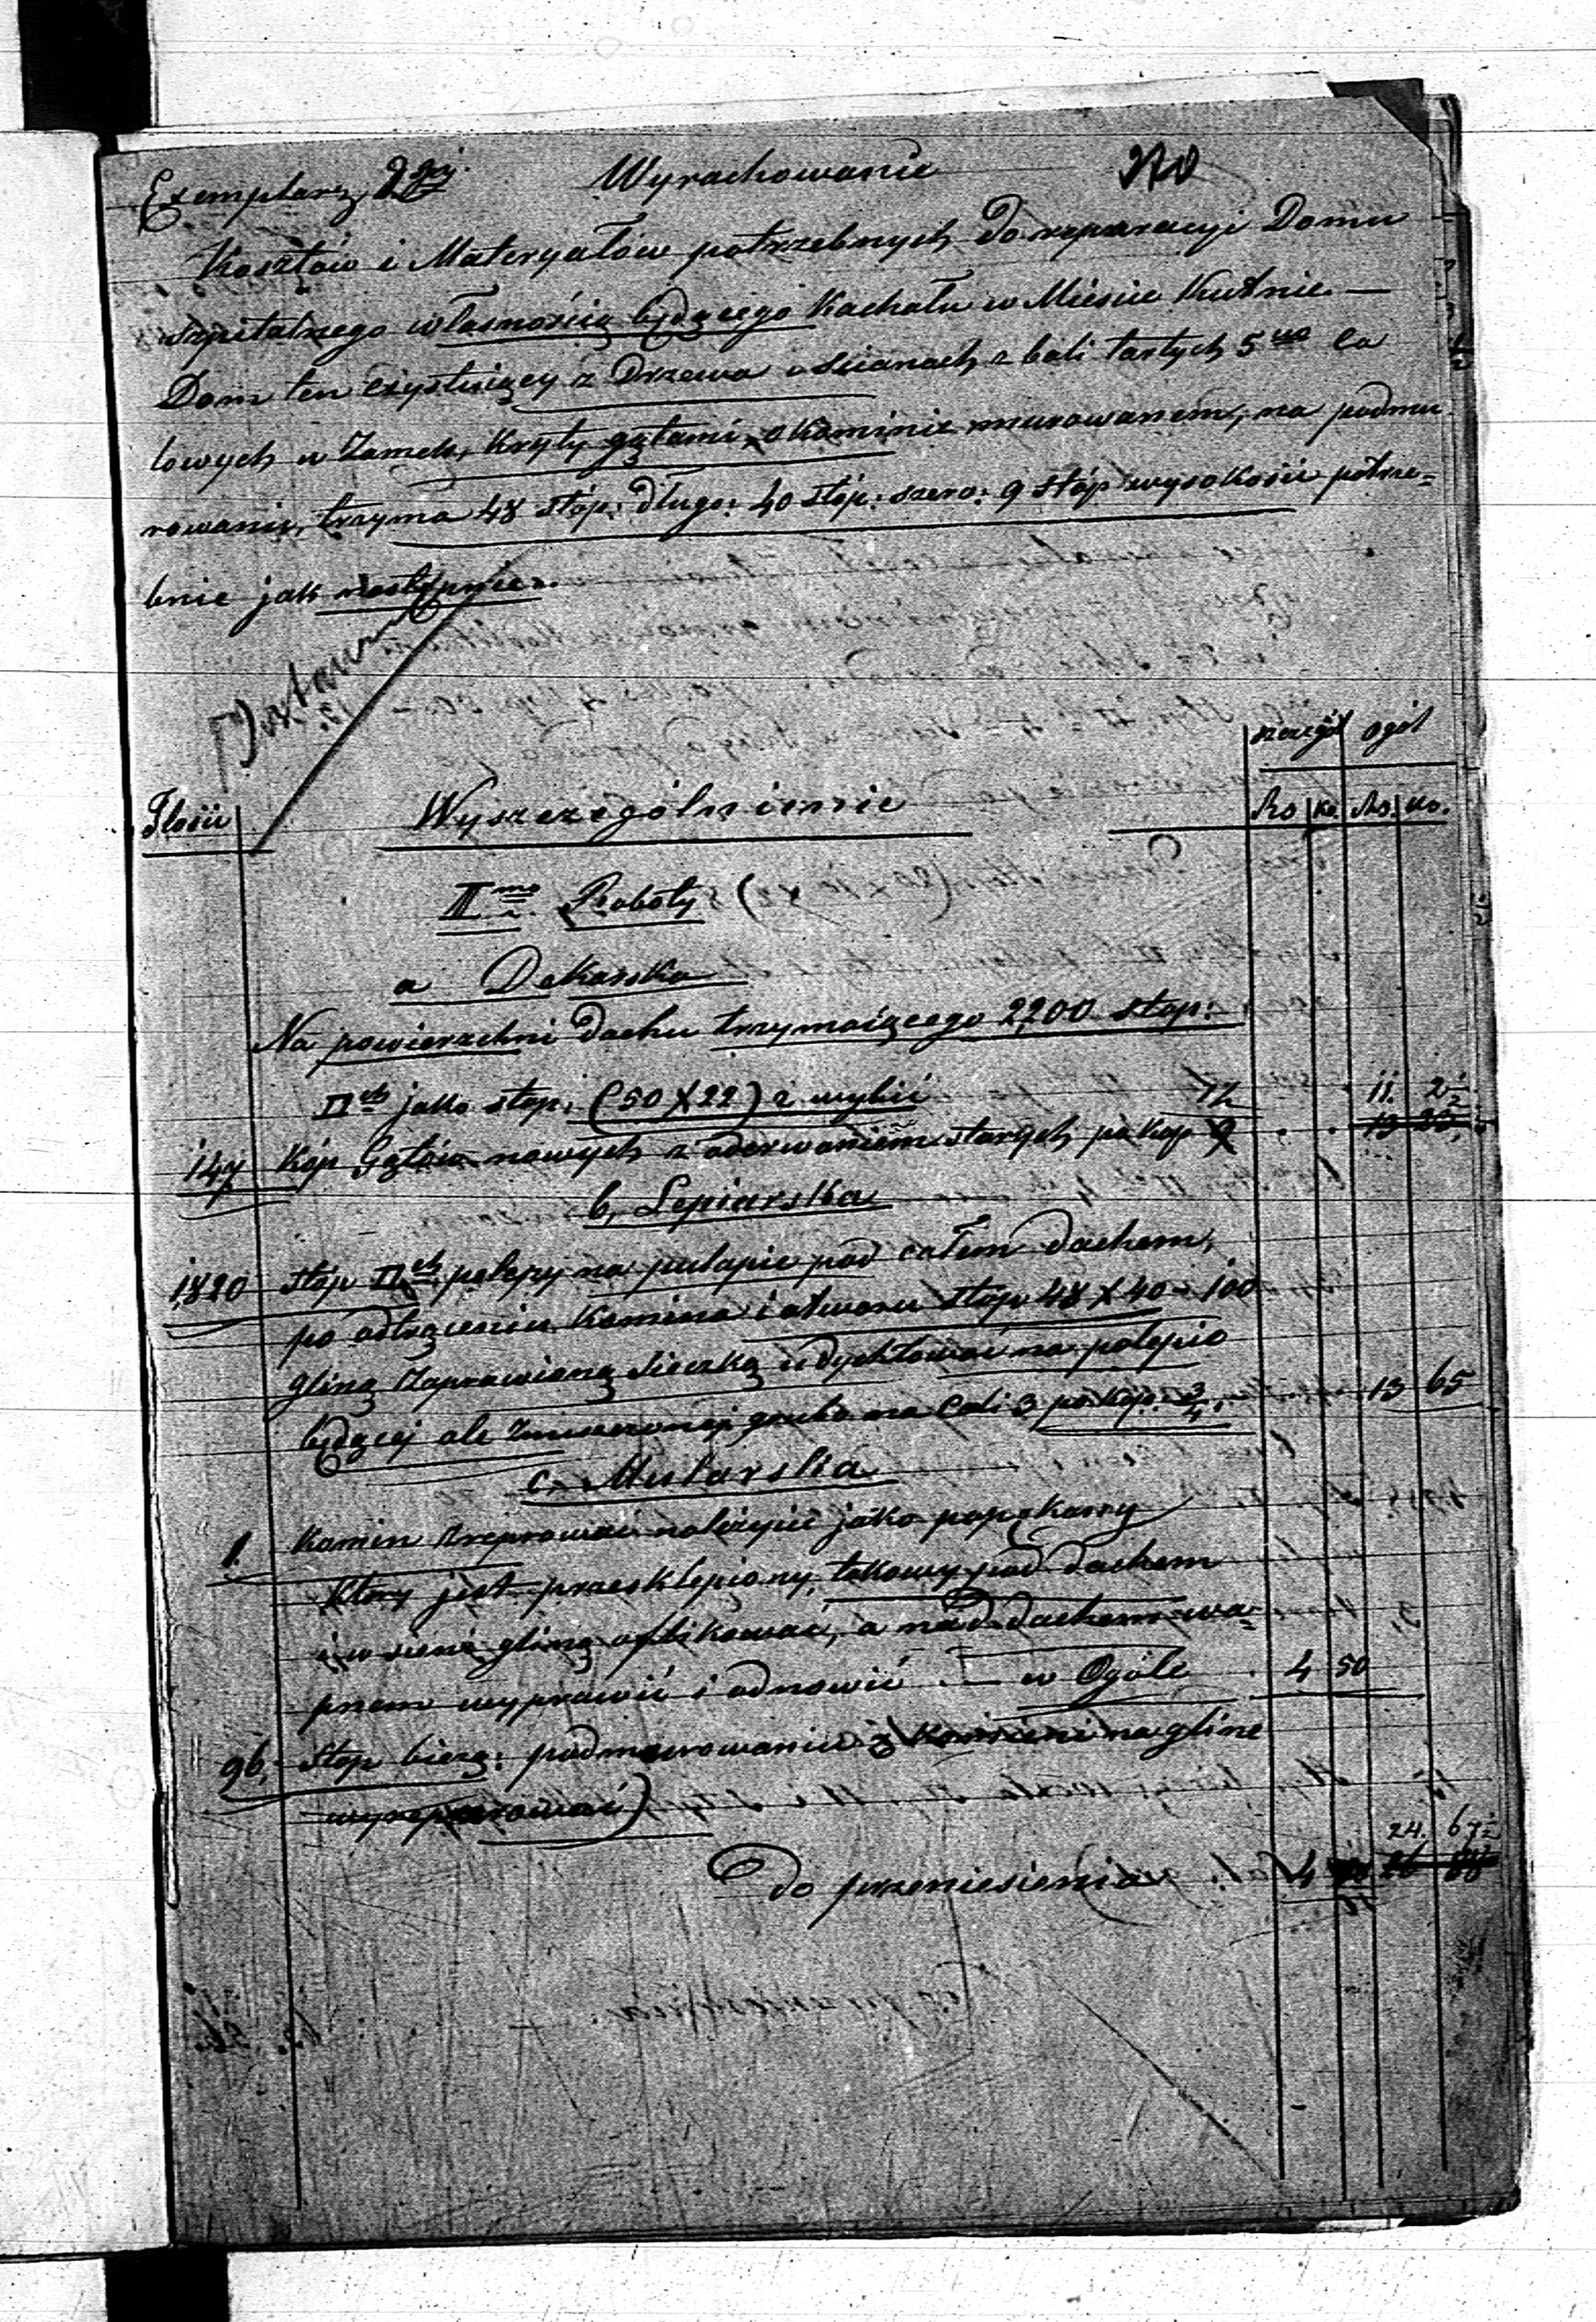 Exemplarz 2gi. Wyrachowanie 270
Kosztów i Materyałów potrzebnych do reparacyi Domu
szpitalnego własnością będącego Kachału w Mieście Kutnie. —
Dom ten exystuiący z Drzewa o scianach z bali tartych 5cio ca
lowych w Zamek, kryty gątami, o kominie murowanem, na podmu
rowaniu, trzyma 48 stóp: długo: 40 stóp: szero: 9 stóp wysokości potrze=
bnie jak następuie.
Ilości Wyszczególnienie
szczegół ogół
Ro ko. Ro. ko.
IImo Roboty
a Dekarska
Na powierzchni dachu trzymaiącego 2200 stop:
□ch jako stop: (50 X 22) 2 wybić 7½ 11. 2½
147 Kóp Gątów nowych z oderwaniem starych po kop 9
b, Lepiarska
1820 stóp □ch polepy na pułapie pod całem dachem,
po odtrąceniu komina i otworu stóp 48 X 40 - 100
gliną zaprawioną sieczką udychtować na polepie
będącej ale zniszczonej grubo na cali 3 po kop: ¾, 13 65
c. Mularska
1. Komin zreperować należycie jako popękany
który jest przesklepiony, takowy pod dachem
i w sieni gliną ofikować, a nad dachem wa=
pnem wyprawić i odnowić . — w Ogóle 4 50
96, stop bieżą: podmurowania z kamieni na glinę
wyreperować)
24. 67½
Do przeniesienia 4